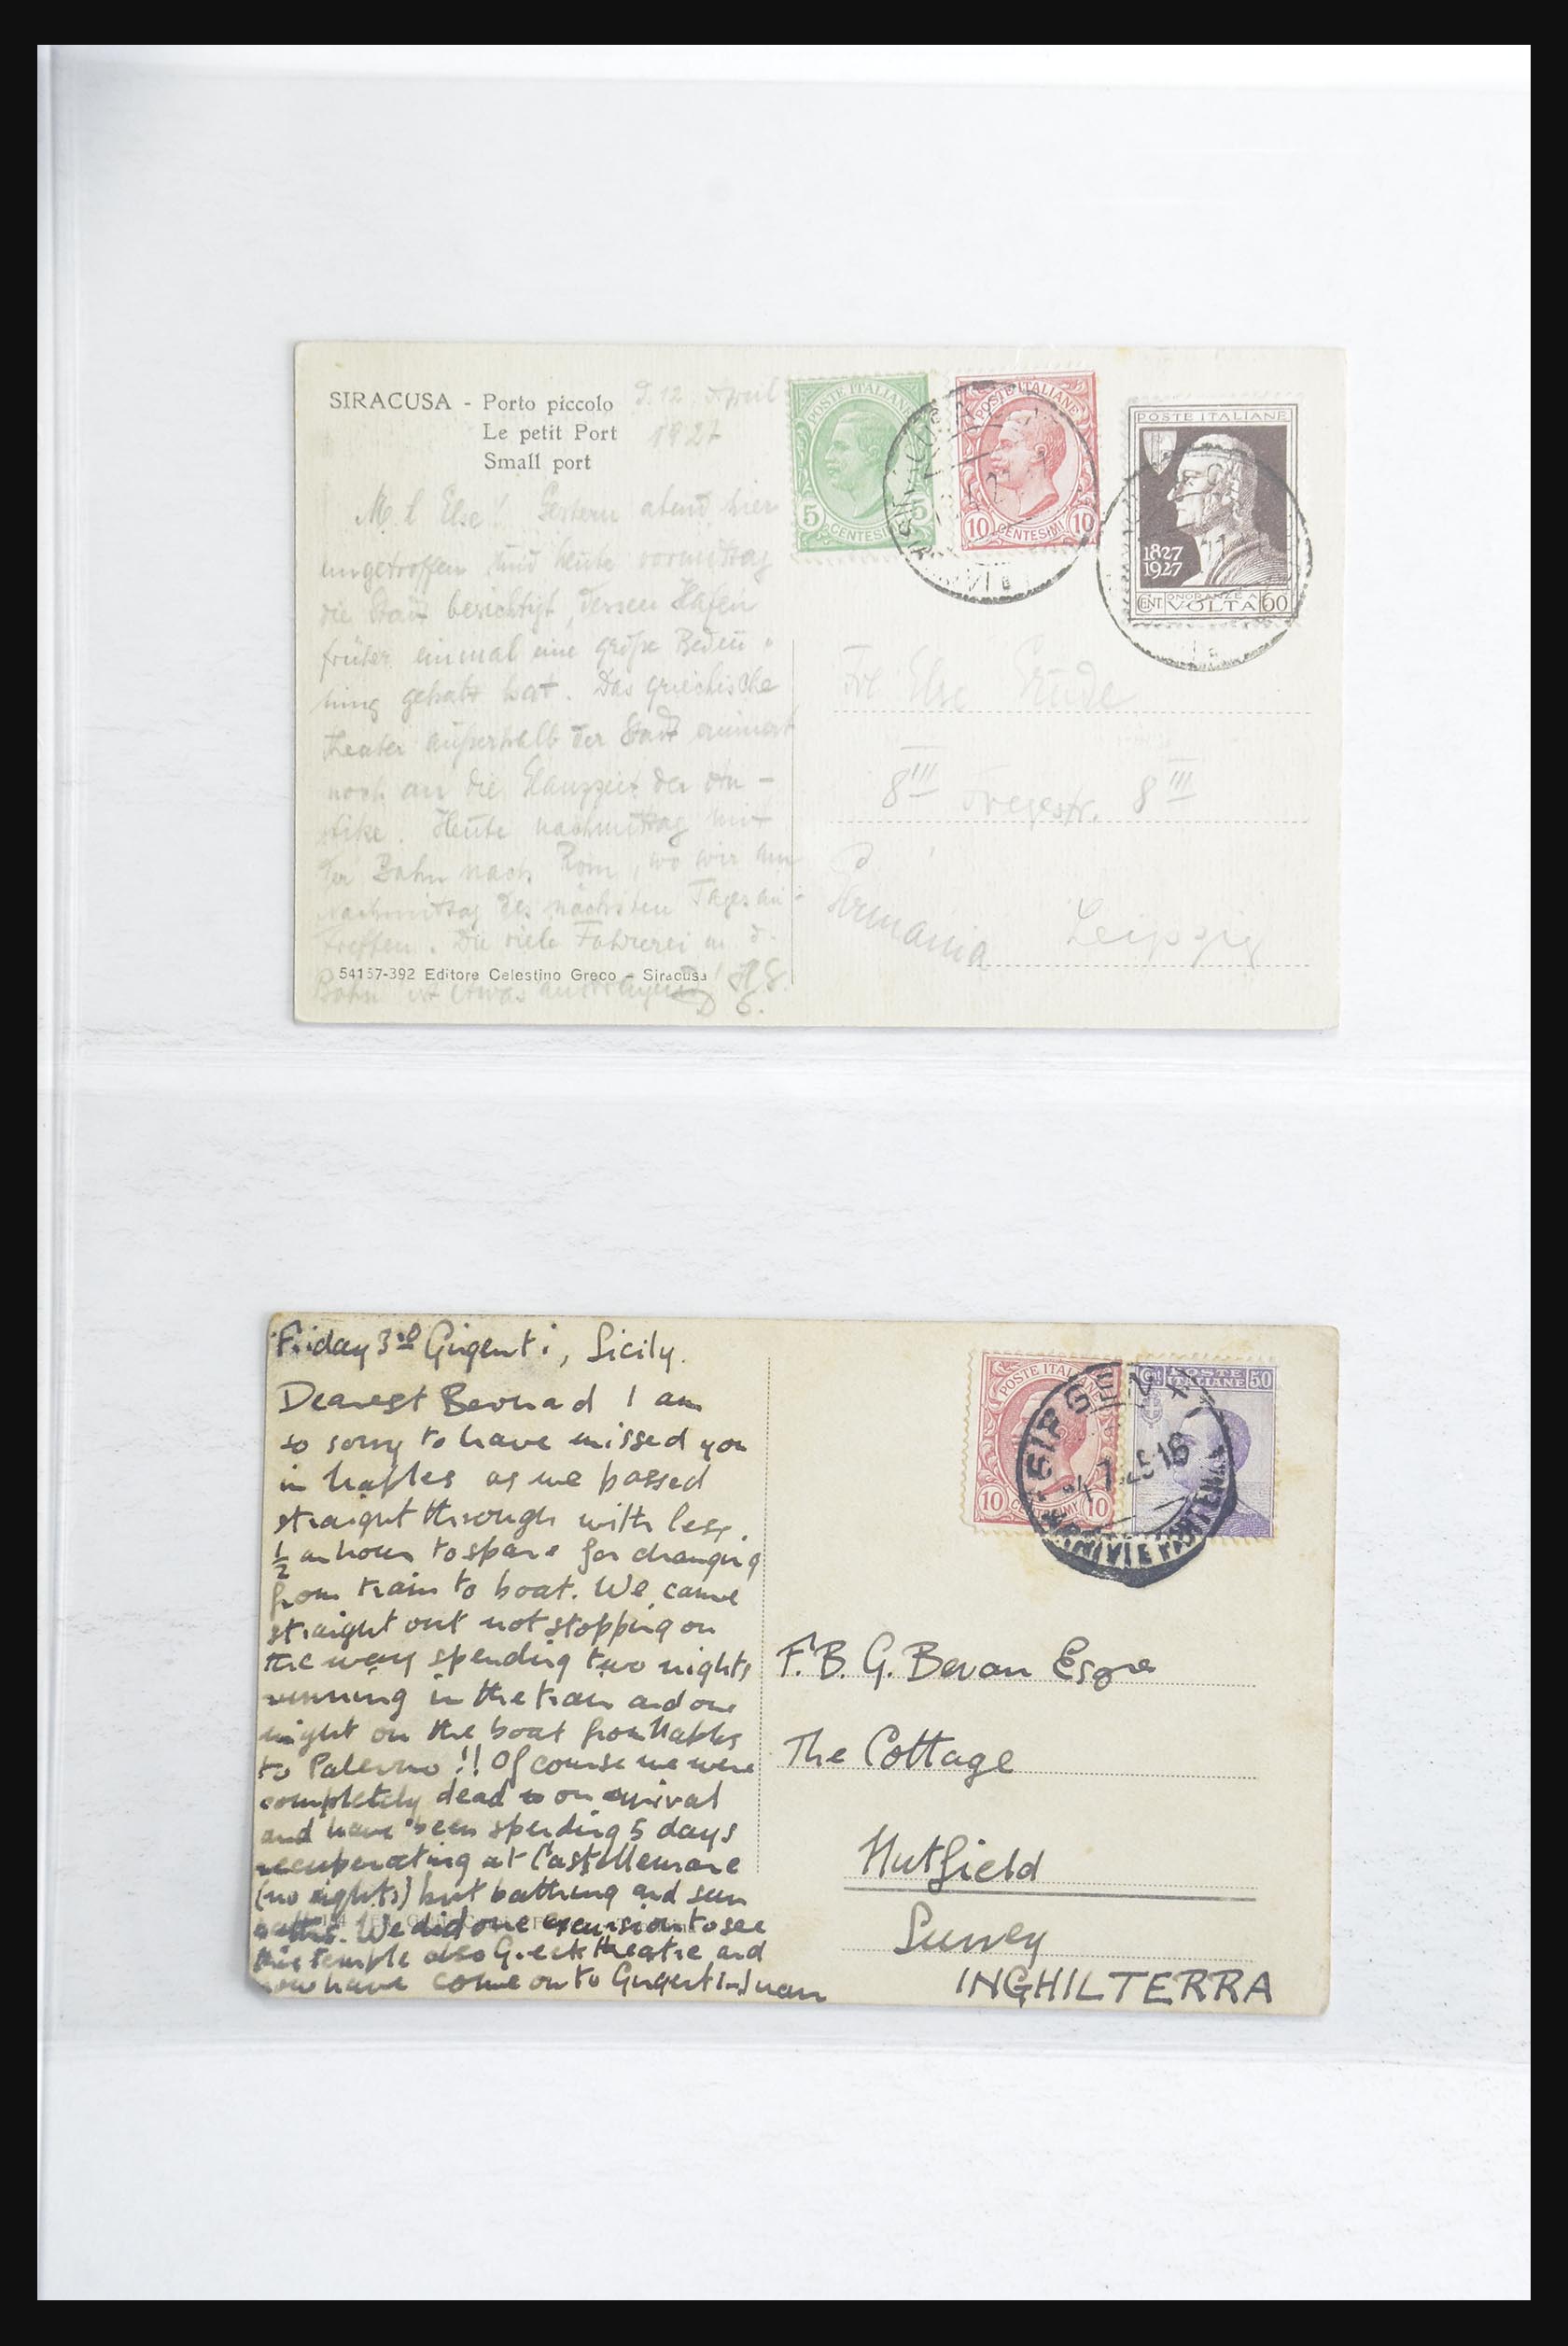 SIRACUSA - Porto piccolo
Le petit Port
Small port
D. 12. April
1927
M. l. Else! Gestern abend hier
eingetroffen und heute vormittag
die Stadt besichtigt, dessen Hafen
früher einmal eine große Bedeu-
tung gehabt hat. Das griechische
Theater außerhalb der Stadt erinnert
noch an die Glanzzeit der An-
tike. Heute nachmittag mit
der Bahn nach Rom, wo wir am
Nachmittag des nächsten Tages ein-
treffen. Die viele Fahrerei m. d.
Bahn ist etwas
54157-392 Editore Celestino Greco - Siracusa
POSTE ITALIANE
5 5
CENTESIMI
POSTE ITALIANE
10 10
CENTESIMI
POSTE ITALIANE
1827
1927
ONORANZE A
CENT. VOLTA 60
Frl Else
8 III Fregestr. 8 III
Germania Leipzig
Friday 3rd Girgenti, Sicily.
Dearest Bernard I am
so sorry to have missed you
in Naples as we passed
straight through with less
1/2 an hour to spare for changing
from train to boat. We came
straight out not stopping on
the way spending two nights
running in the train and one
night on the boat from Naples
to Palermo!! Of course we were
completely dead on arrival
and have been spending 5 days
recuperating at Castellemare
(no sights) but bathing and sun
baths. We did one excursion to see
this temple also Greek theatre and
now have come on to Girgenti
POSTE ITALIANE
10 10
POSTE
ITALIANE 50
F. B. G. Bevan Esqre
The Cottage
Nutfield
Surrey
INGHILTERRA